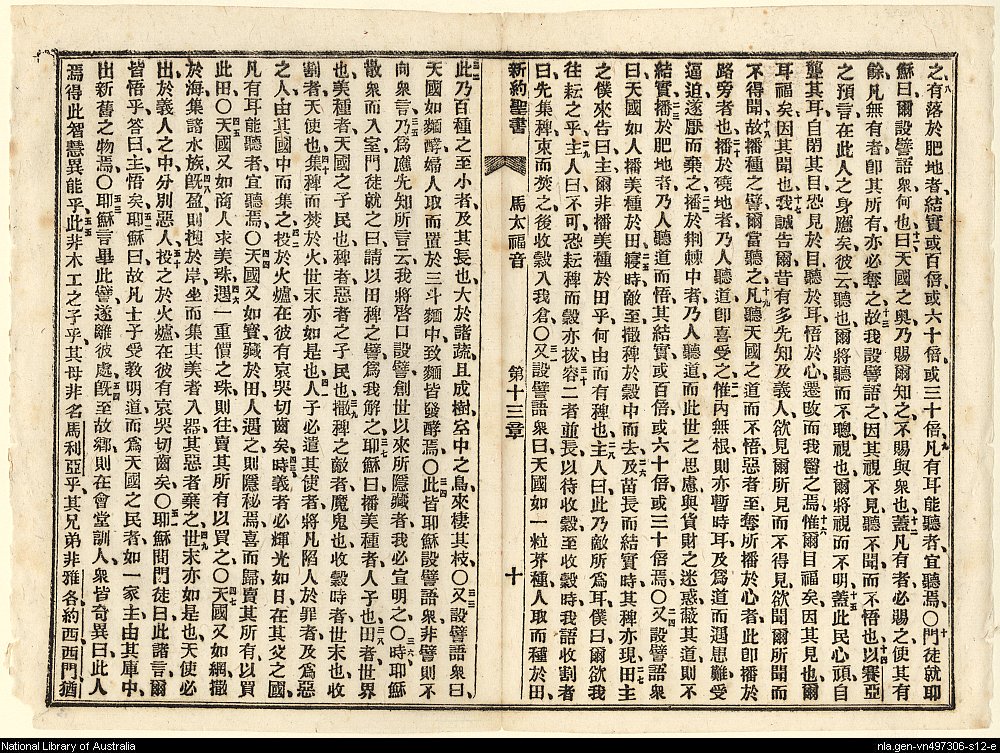 之有落於肥地者、結實或百倍、或六十倍、或三十倍、凡有耳能聽者、宜聽焉、〇門徒就耶
穌曰、爾設譬語衆、何也、曰、天國之奧、乃賜爾知之、不賜與衆也、蓋凡有者、必賜之、使其有
餘、凡無有者、卽其所有、亦必奪之、故我設譬語之、因其視不見、聽不聞、而不悟也、以賽亞
之預言、在此人之身應矣、彼云、聽也、爾將聽而不聰、視也、爾將視而不明、蓋此民心頑、自
聾其耳、自閉其目、恐見於目、聽於耳、悟於心、遷改而我醫之焉、惟爾目福矣、因其見也、爾
耳福矣、因其聞也、我誠告爾、昔有多先知及義人、欲見爾所見而不得見、欲聞爾所聞而
不得聞、故播種之譬、爾當聽之、凡聽天國之道而不悟、惡者至、奪所播於心者、此卽播於
路旁者也、播於磽地者、乃人聽道、卽喜受之、惟內無根、則亦暫時耳、及爲道而遇患難、受
逼迫、遂厭而棄之、播於荆棘中者、乃人聽道、而此世之思慮、與貨財之迷惑、蔽其道、則不
結實、播於肥地者、乃人聽道而悟、其結實或百倍、或六十倍、或三十倍焉、〇又設譬語衆
曰、天國如人播美種於田、寢時敵至、撒稗於穀中而去、及苗長而結實時、其稗亦現、田主
之僕來告曰、主、爾非播美種於田乎、何由而有稗也、主人曰、此乃敵所爲耳、僕曰、爾欲我
往耘之乎、主人曰、不可、恐耘稗而穀亦拔、容二者並長、以待收穀、至收穀時、我語收割者
曰、先集稗束而焚之、後收穀入我倉、〇又設譬語衆曰、天國如一粒芥種、人取而種於田、
新約聖書 馬太福音 第十三章 十
此乃百種之至小者、及其長也、大於諸蔬、且成樹、空中之鳥來棲其枝、〇又設譬語衆曰、
天國如麵酵、婦人取而置於三斗麵中、致麵皆發酵焉、〇此皆耶穌設譬語衆、非譬則不
向衆言、乃爲應先知所言云、我將啓口設譬、創世以來所隱藏者、我必宣明之、〇時耶穌
散衆而入室、門徒就之曰、請以田稗之譬、爲我解之、耶穌曰、播美種者、人子也、田者、世界
也、美種者、天國之子民也、稗者、惡者之子民也、撒稗之敵者、魔鬼也、收穀時者、世末也、收
割者、天使也、集稗而焚於火、世末亦如是也、人子必遣其使者、將凡陷人於罪者、及爲惡
之人、由其國中而集之、投於火爐、在彼有哀哭切齒矣、時義者必輝光如日、在其父之國、
凡有耳能聽者、宜聽焉、〇天國又如寶藏於田、人遇之則隱秘焉、喜而歸、賣其所有、以買
此田、〇天國又如商人求美珠、遇一重價之珠、則往賣其所有以買之、〇天國又如網、撒
於海、集諸水族、旣盈、則拽於岸、坐而集其美者入器、其惡者棄之、世末亦如是也、天使必
出、於義人之中、分別惡人、投之於火爐、在彼有哀哭切齒矣、〇耶穌問門徒曰、此諸言、爾
皆悟乎、答曰、主、悟矣、耶穌曰、故凡士子受教明道、而爲天國之民者、如一家主、由其庫中、
出新舊之物焉、〇耶穌言畢此譬、遂離彼處、旣至故鄉、則在會堂訓人、衆皆奇異曰、此人
焉得此智慧異能乎、此非木工之子乎、其母非名馬利亞乎、其兄弟非雅各、約西、西門、猶
National Library of Australia
nla.gen-vn497306-s12-e